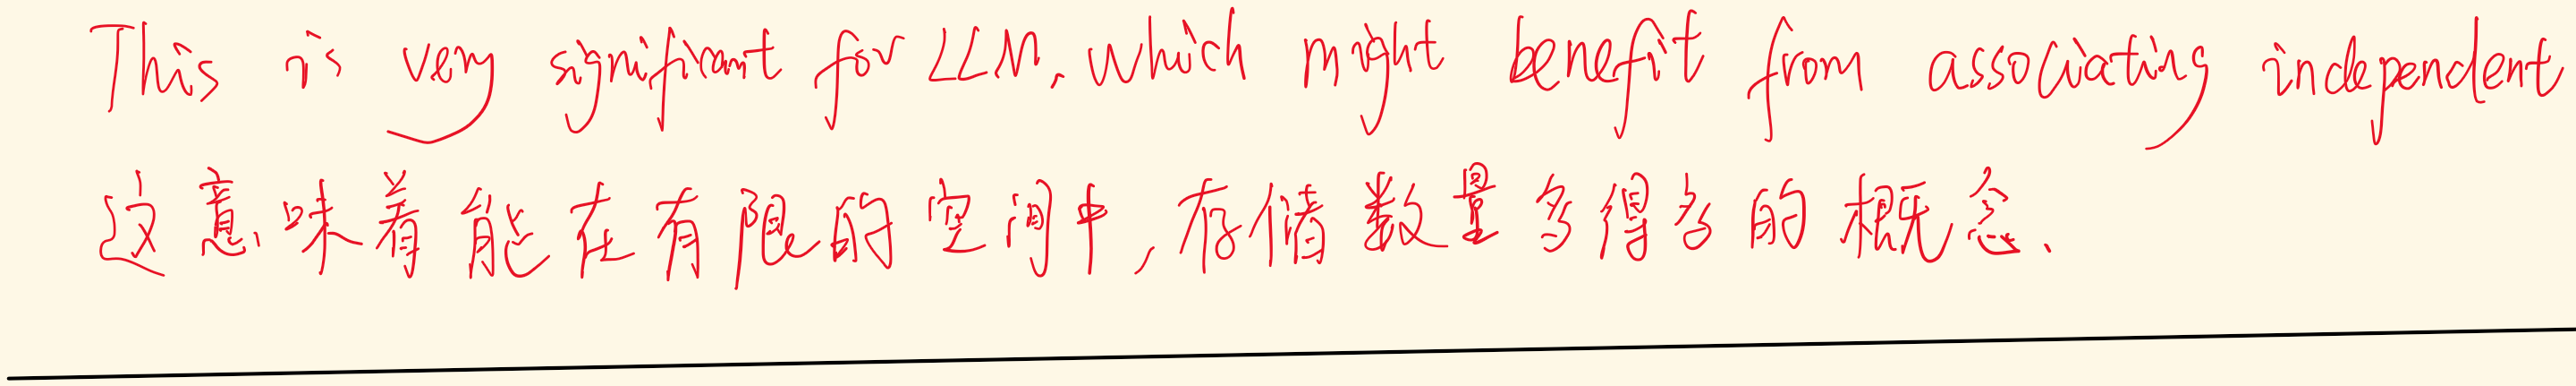 This is very significant for LLM, which might benefit from associating independent
这意味着能在有限的空间中,存储数量多得多的概念、